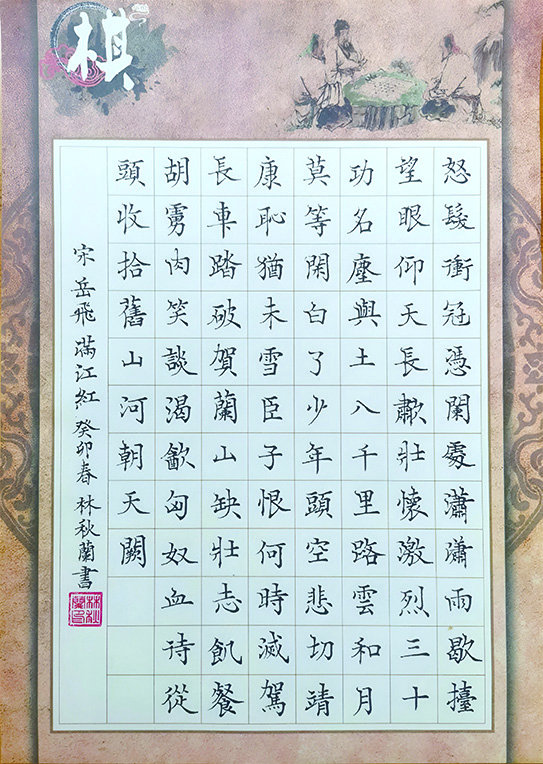 棋
怒髮衝冠憑闌處瀟瀟雨歇擡
望眼仰天長歗壯懷激烈三十
功名塵與土八千里路雲和月
莫等閑白了少年頭空悲切靖
康恥猶未雪臣子恨何時滅駕
長車踏破賀蘭山缺壯志飢餐
胡虜肉笑談渴㱃匈奴血待從
頭收拾舊山河朝天闕
宋岳飛滿江紅癸卯春林秋蘭書